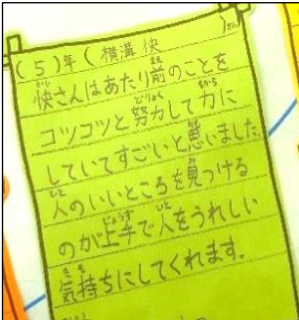 (5)年(横溝 快 )さん
快さんはあたり前のことを
コツコツと努力して力に
していてすごいと思いました。
人のいいところを見つける
のが上手で人をうれしい
気持ちにしてくれます。